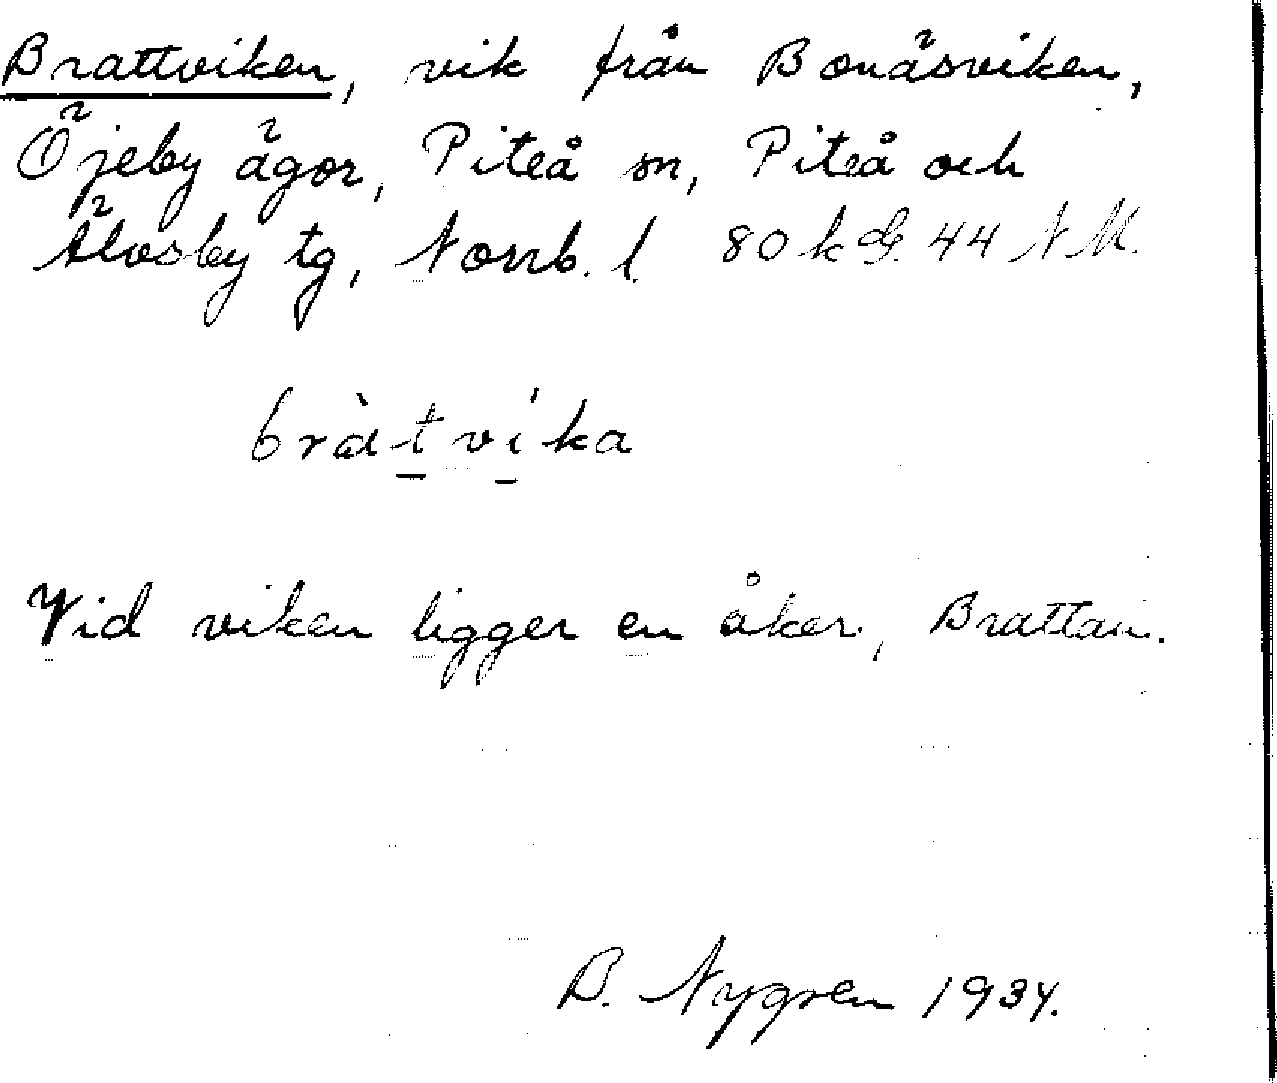 Brattviken, vik från Bonäsviken,
Öjeby ägor, Piteå sn, Piteå och
Älvsby tg, Norrb. l. 80 k 44 N M.
bràtvíka
Vid viken ligger en åker, Brattan.
B. Nygren 1934.